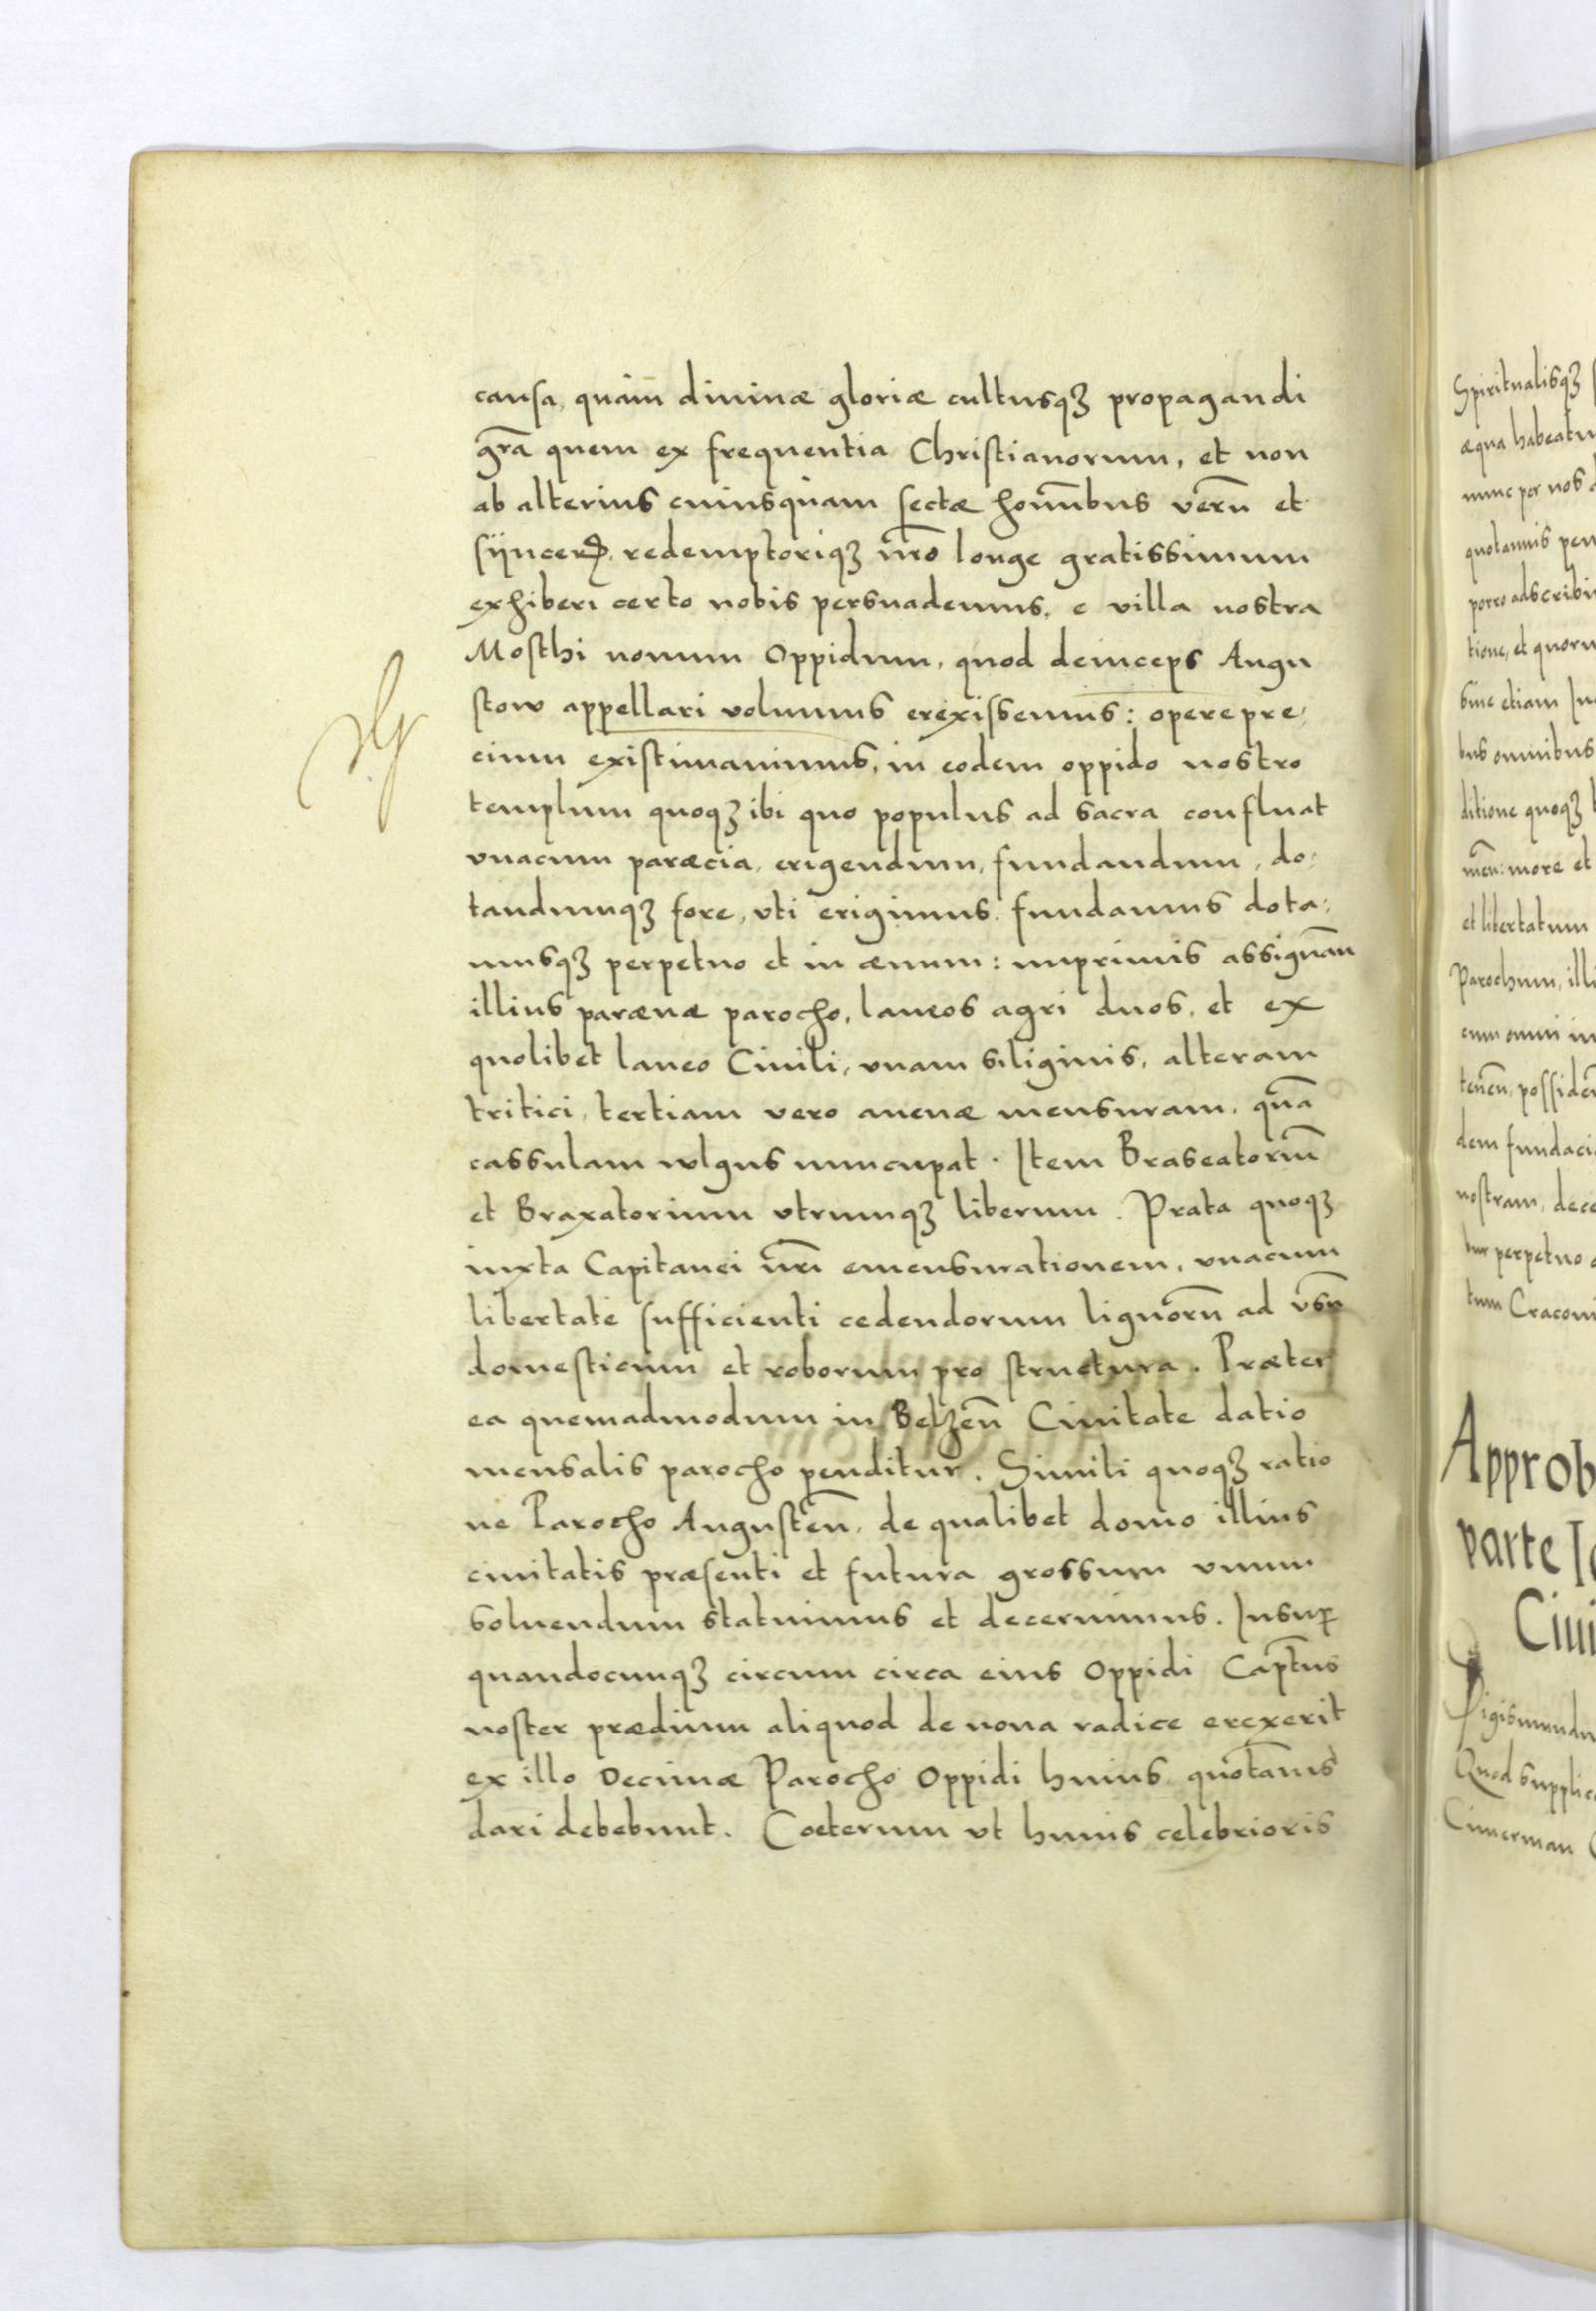 causa, quàm diuinæ gloriæ cultusqꝫ propagandi
gr̃a quem ex frequentia Christianorum, et non
ab alterius cuiusquam sectæ homībus verū et
sÿncerū redemptoriqꝫ nr̃o longe gratissimum
exhiberi certo nobis persuademus, e villa nostra
Mosthi nouum Oppidum, quod deinceps Augu
stow appellari volumus erexissemus: operepre:
cium existimauimus, in eodem oppido nostro
templum quoqꝫ ibi quo populus ad sacra confluat
vnacum paræcia, erigendum, fundandum, do:
tandumqꝫ fore, vti erigimus. fundamus dota:
musqꝫ perpetuo et in æuum: inprimis assignañ
illius paræciæ parocho, laneos agri duos, et ex
quolibet laneo Ciuili, vnam siliginis, alteram
tritici, tertiam vero auenæ mensuram, quā
cassulam wlgus nuncupat. Item Braseatoriū
et Braxatorium vtrumqꝫ liberum. Prata quoqꝫ
iuxta Capitanei nr̃i emensurationem, vnacum
libertate sufficienti cedendorum lignorū ad vsū
domesticum et roborum pro structura. Præter
ea quemadmodum in Belzeñ Ciuitate datio
mensalis parocho penditur. Simili quoqꝫ ratio
ne Parocho Augusteñ, de qualibet domo illius
ciuitatis præsenti et futura grossum vnum
soluendum statuimus et decernimus. Insuꝑ
quandocunqꝫ circum circa eius Oppidi Capt̃nus
noster prædium aliquod de noua radice erexerit
ex illo Decimæ Parocho Oppidi huius quotānis
dari debebunt. Coeterum vt huius celebrioris
Spiritualisqꝫ
æqua habeatu
nunc per nos
quotannis pen
porro adscribi
tione, et quoru
siue etiam In
bus omnibus
ditione quoqꝫ
meñ: more et
et libertatum
Parochum, illi
cum omni iu
teneñ, posside
dem fundaci
nostram, dece
tur perpetuo
tum Cracoui
Approb
parte I
Ciui
Sigismundu
Quod supplic
Cimerman